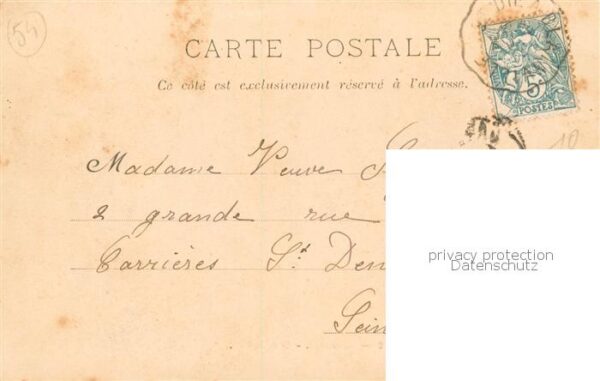 54
CARTE POSTALE
Ce côté est exclusivement réservé à l'adresse.
5
POSTES
10
Madame Veuve
2 grande rue
Carrières St Den
Sein
privacy protection
Datenschutz